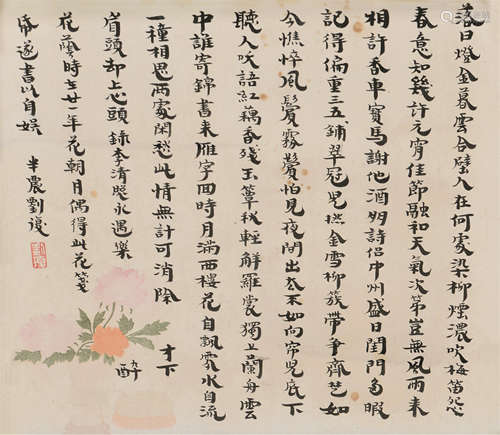 落日鎔金暮雲合璧人在何處染柳煙濃吹梅笛怨
春意知幾許元宵佳節融和天氣次第豈無風雨來
相許香車寶馬謝他酒朋詩侶中州盛日閨門多暇
記得偏重三五鋪翠冠兒撚金雪柳簇帶爭齊楚如
今憔悴風鬟霧鬢怕見夜間出去不如向帘兒底下
聽人笑語紅藕香殘玉簟秋輕解羅裳獨上蘭舟雲
中誰寄錦書來雁字回時月滿西樓花自飄零水自流
一種相思兩處閑愁此情無計可消除才下
眉頭却上心頭錄李清照永遇樂醉
花蔭時在廿一年花朝月偶得此花箋
帋遂書以自娛半農劉復